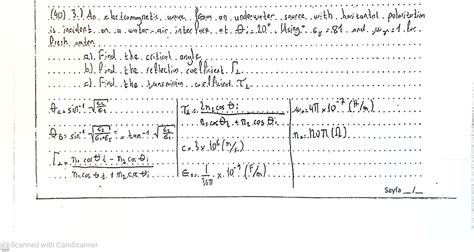 (40) 3.) An electromagnetic wave from an underwater source with horizontal polarization
is incident on a water-air interface at θi=20°. Using εr=81 and μr=1 for
fresh water
a). Find the critical angle
b). Find the reflection coefficient Γ⊥
c). Find the transmission coefficient T⊥
θc=sin⁻¹√(ε2/ε1)
θB=sin⁻¹√(ε2/(ε1+ε2)) = tan⁻¹√(ε2/ε1)
Γ⊥= (n2 cosθi - n1 cosθt)/(n2 cosθi + n1 cosθt)
T⊥= 2n2 cosθi/(n2 cosθi + n1 cosθt)
c=3x10⁸(m/s)
ε0= 1/36π x 10⁻⁹ (F/m)
μ0=4π x 10⁻⁷ (H/m)
n0=120π (Ω)
Sayfa __/__
Scanned with CamScanner